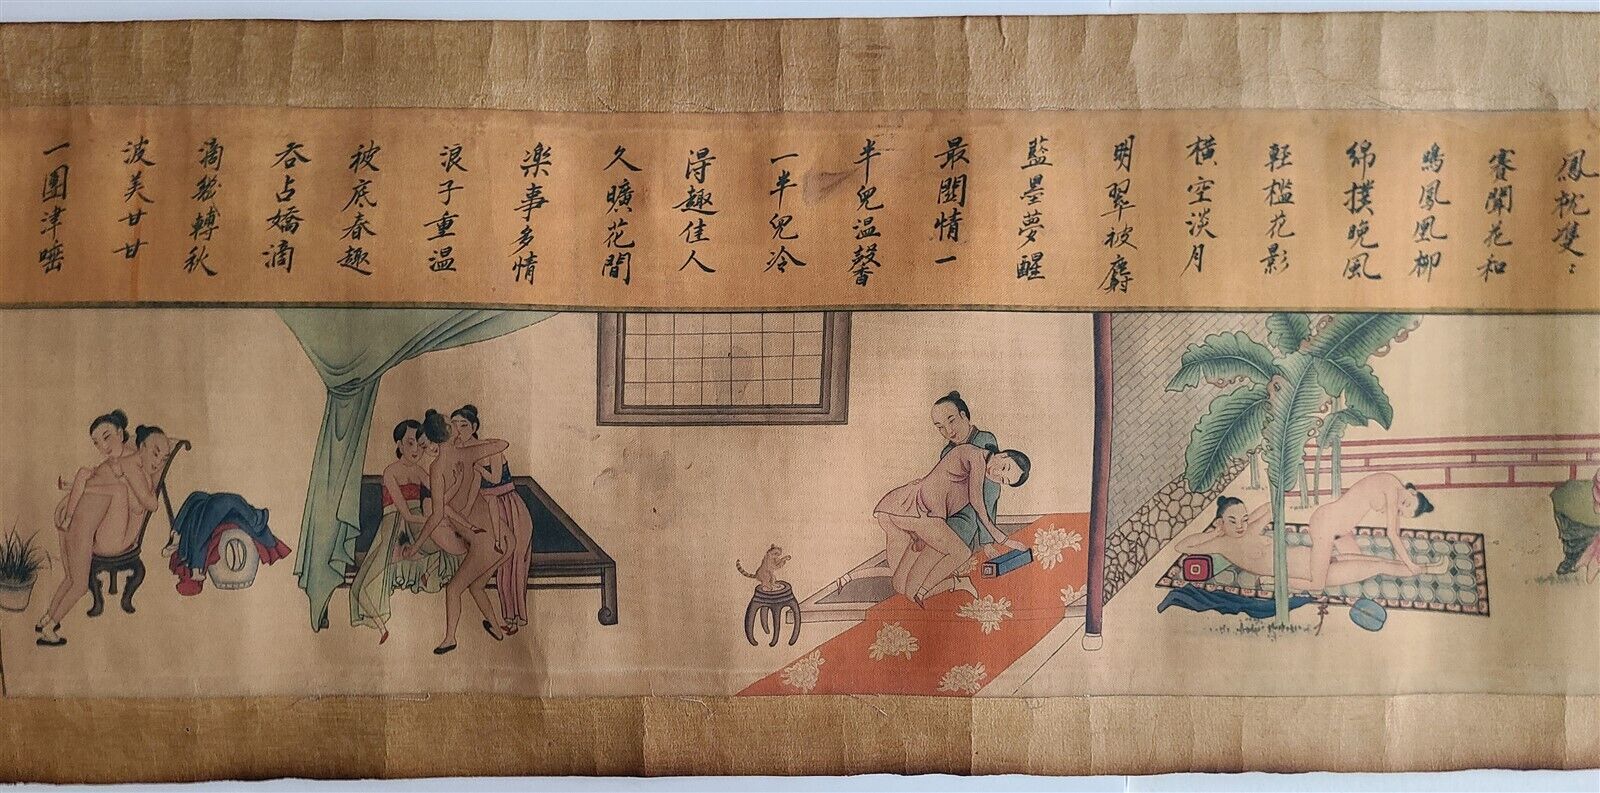 鳳枕雙〻
賽聞花和
鳴鳳凰柳
綿撲晚風
輕檻花影
橫空淡月
明翠被麝
藍墨夢醒
最關情一
半兒温馨
一半兒冷
得趣佳人
久曠花間
樂事多情
浪子重温
被底春趣
吞占嬌滴
滴轉秋
波美甘甘
一團津唾